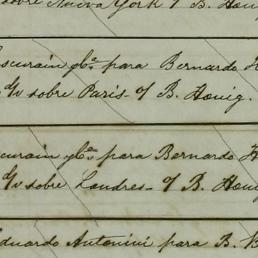 sobre Nueva York / B. Hauig
scurain y Ca. para Bernardo H
Gv sobre Paris - / B. Hauig.
curain y Ca. para Bernardo H
Gv sobre Landres - / B. Haui
Eduardo Antonini para B. B